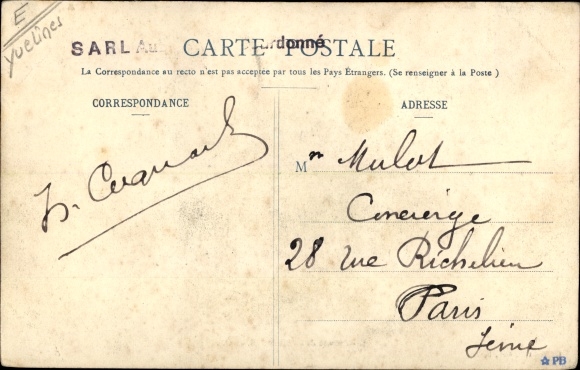 E
Yvelines
SARL Au
CARTE POSTALE
rdonné
La Correspondance au recto n'est pas acceptée par tous les Pays Étrangers. (Se renseigner à la Poste)
CORRESPONDANCE
ADRESSE
M
Mulot
Concierge
28 rue Richelieu
Paris
Seine
PB